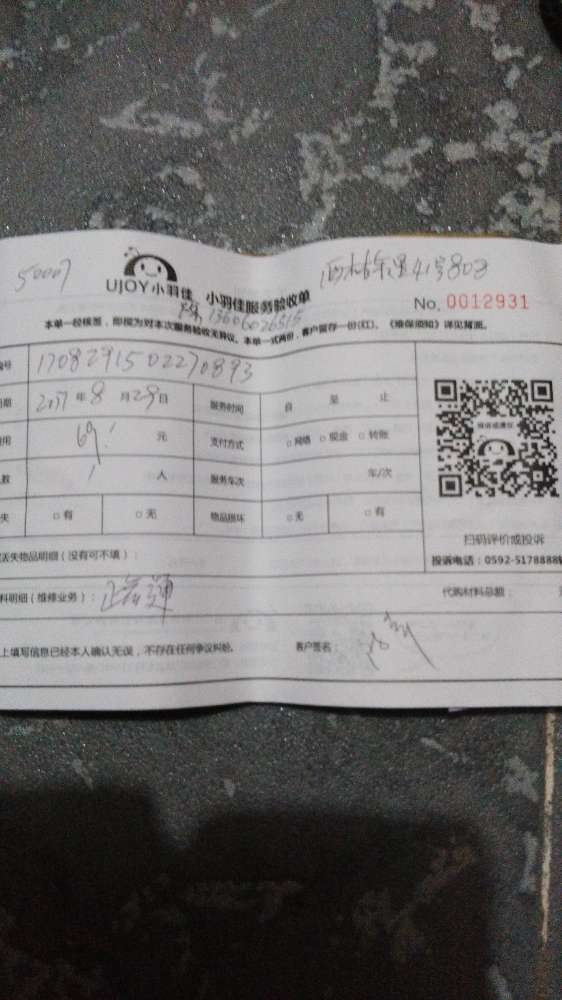 50007
UJOY小羽佳 小羽佳服务验收单
41号803
13606026515
No. 0012931
本单一经核签，即视为对本次服务验收无异议。本单一式两份，客户留存一份(红)。《维保须知》详见背面。
编号 17082915022270893
日期 2017年8月29日 服务时间 自 至 止
费用 69 元 支付方式 □网络 □现金 □转账
人数 1 人 服务车次 车/次
□有 □无 物品损坏 □无 □有
丢失物品明细（没有可不填）：
料明细（维修业务）：
代购材料总额：
上填写信息已经本人确认无误，不存在任何争议纠纷。 客户签名：
微信或通信
扫码评价或投诉
投诉电话：0592-5178888